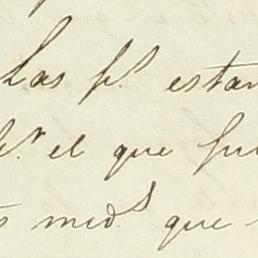 Las p.s estan
p.r el que fue
med.s que